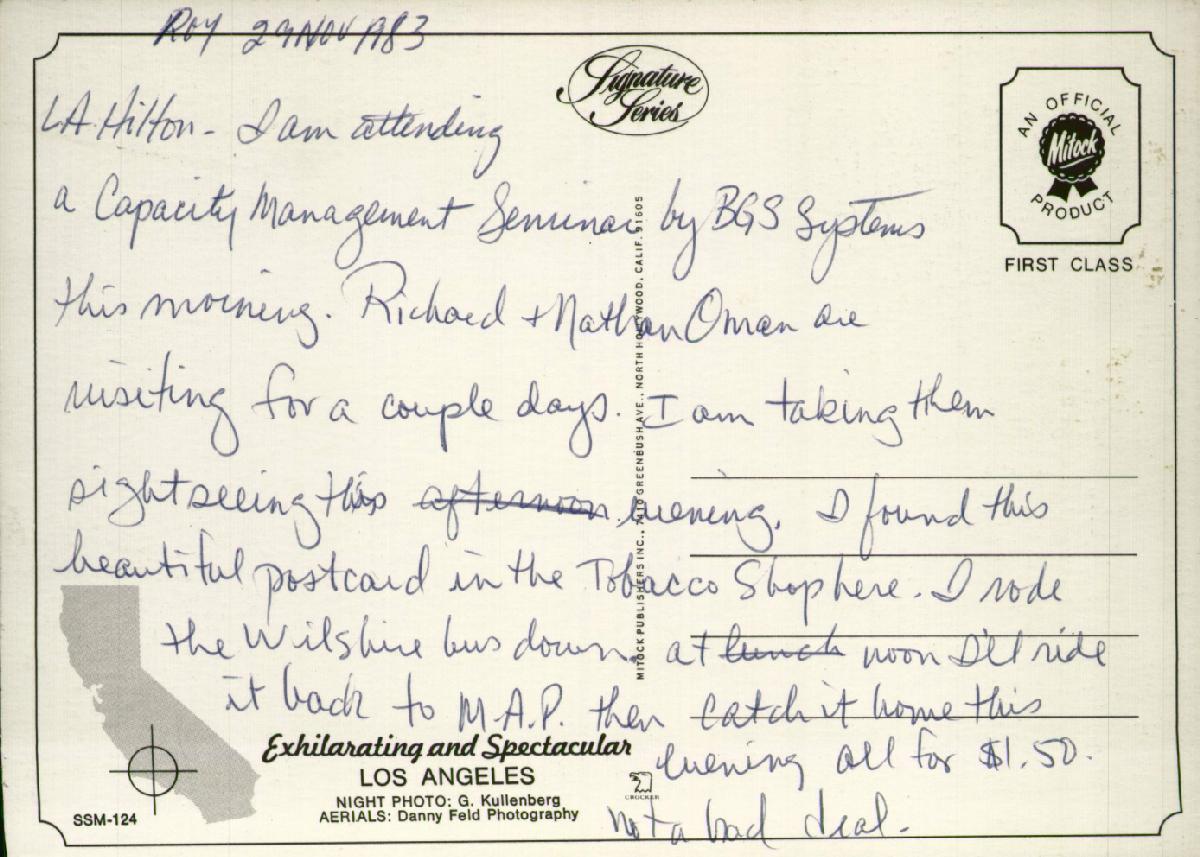 Roy 29 NOV 1983
LA Hilton - I am attending
a Capacity Management Seminar by BGS Systems
this morning. Richard + Nathan Oman are
visiting for a couple days. I am taking them
sightseeing this afternoon evening. I found this
beautiful postcard in the Tobacco Shop here. I rode
the Wilshire bus down. at lunch noon I'll ride
it back to M.A.P. then catch it home this
evening all for $1.50.
Not a bad deal.
Signature
Series
AN OFFICIAL
Mitock
PRODUCT
FIRST CLASS
MITOCK PUBLISHERS INC., 7410 GREENBUSH AVE., NORTH HOLLYWOOD, CALIF. 91605
Exhilarating and Spectacular
LOS ANGELES
NIGHT PHOTO: G. Kullenberg
AERIALS: Danny Feld Photography
SSM-124
CROCKER